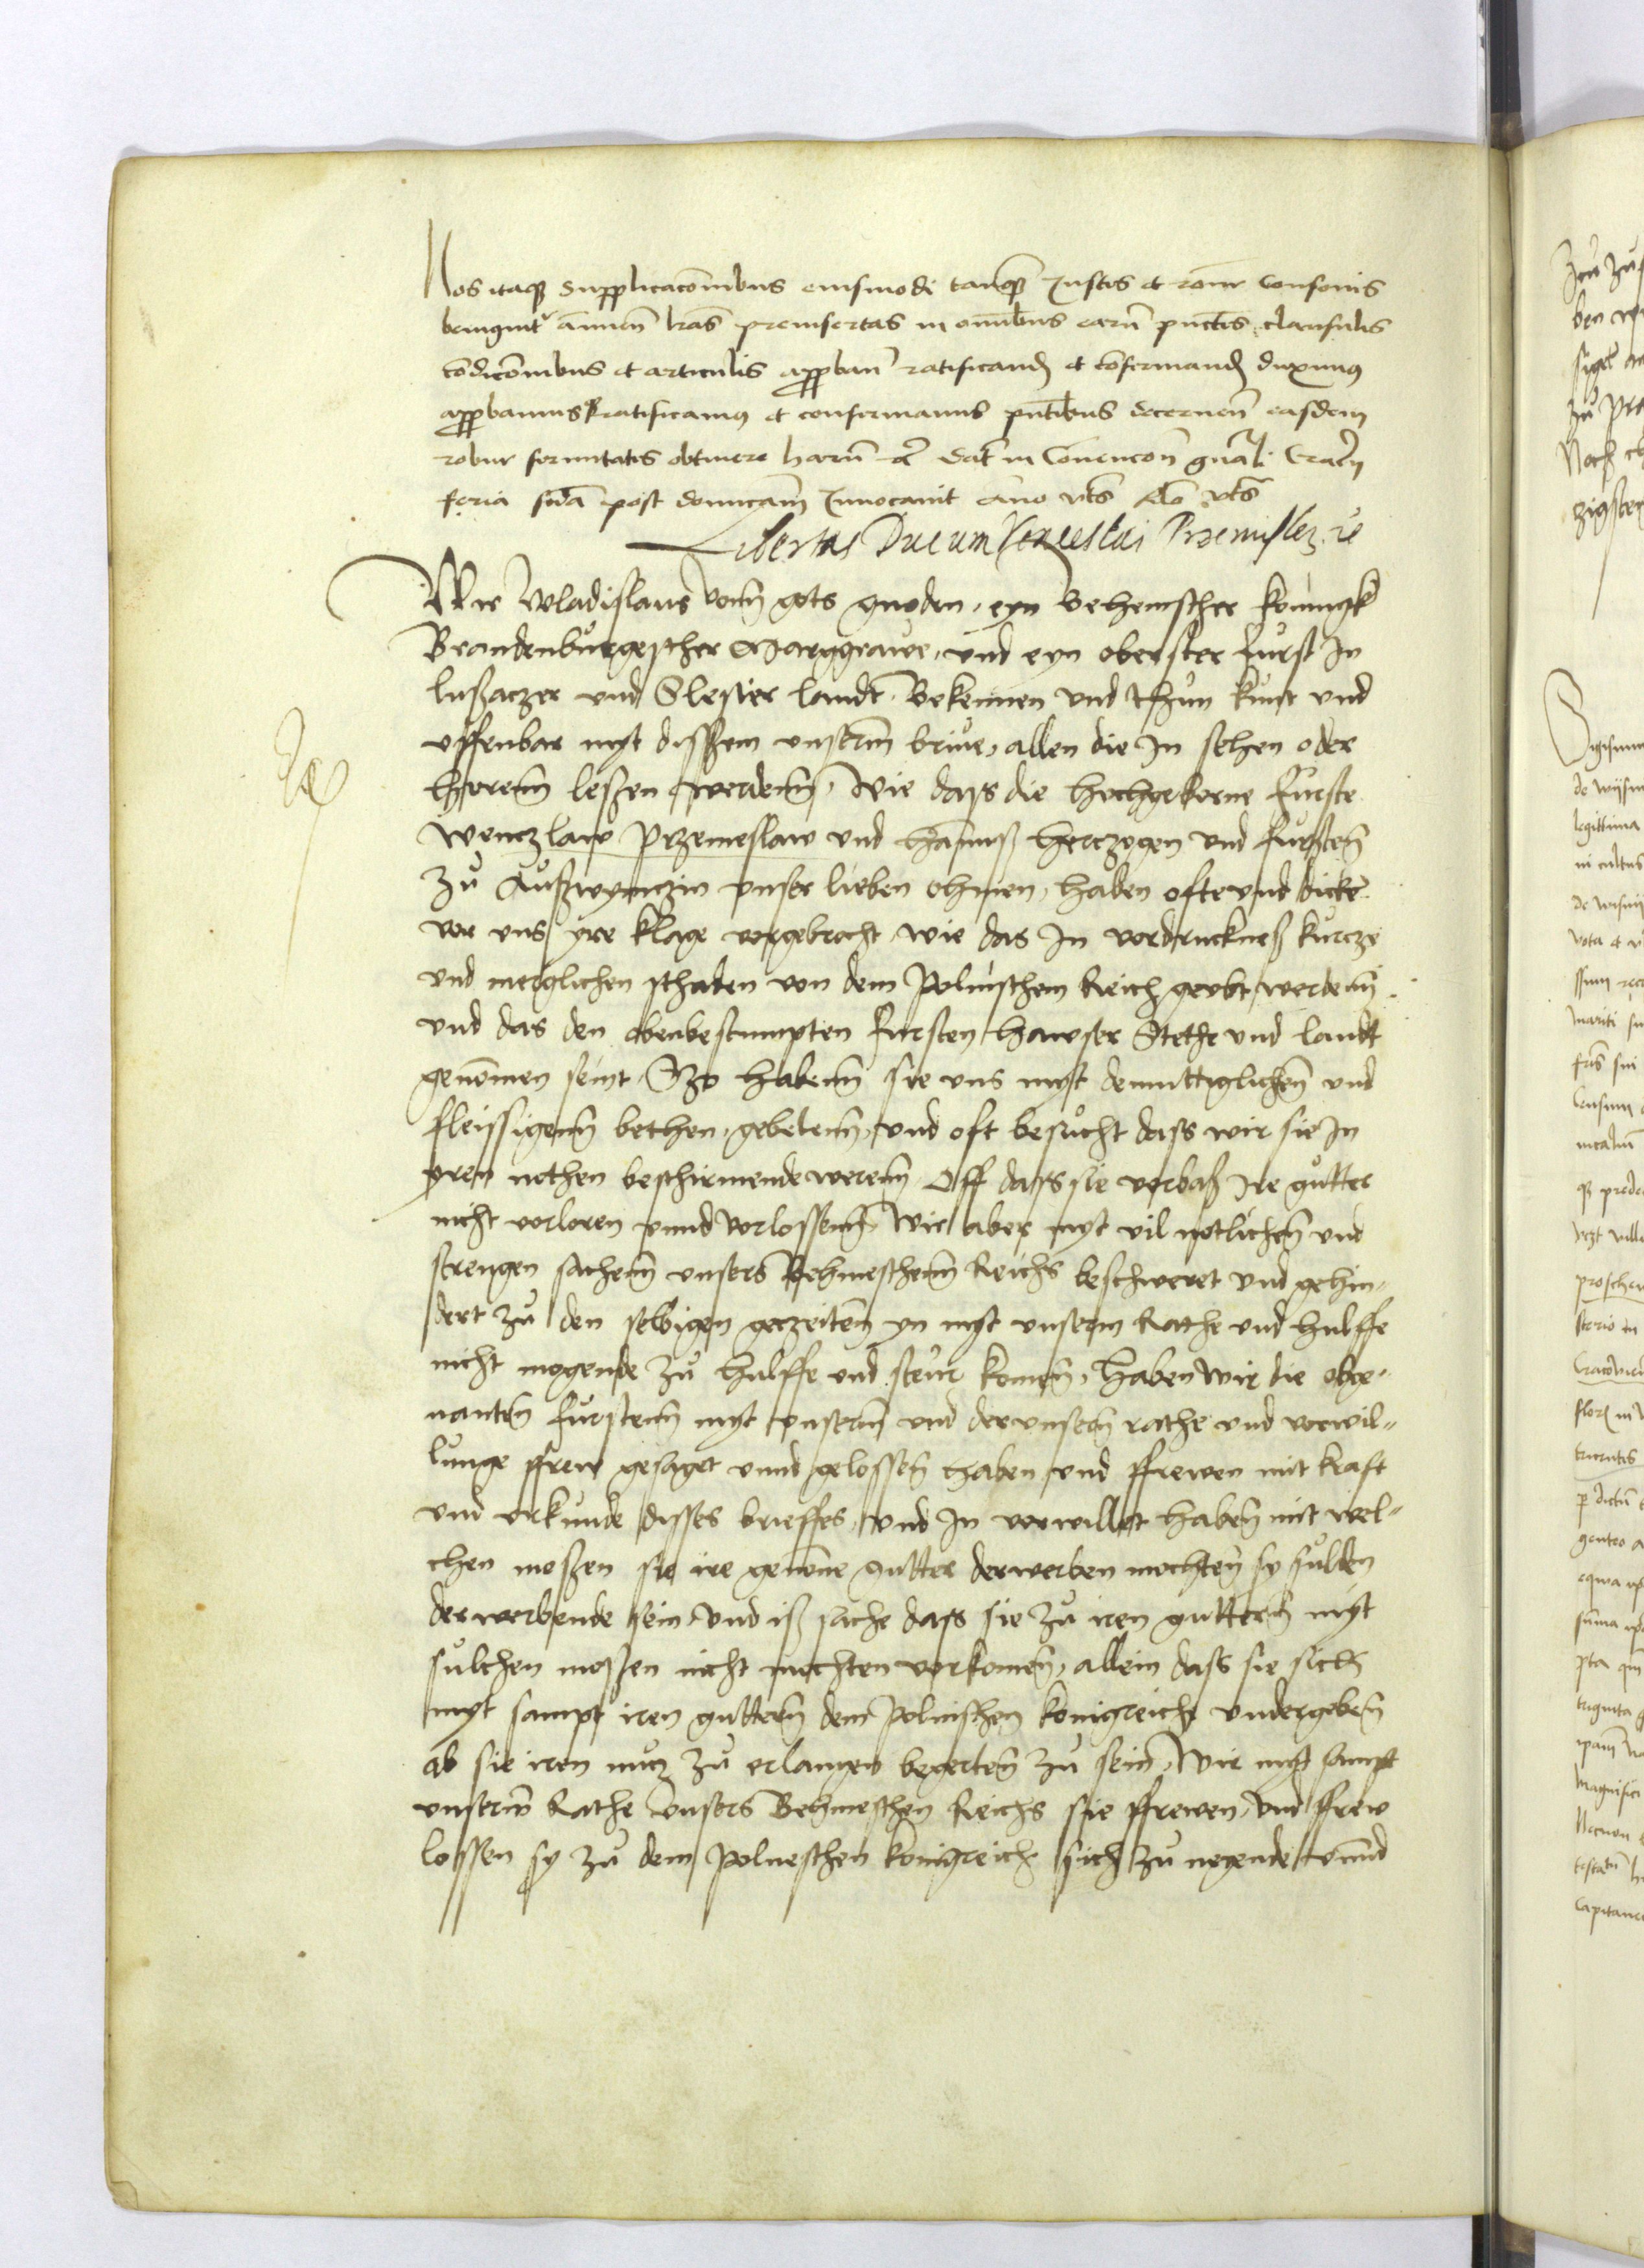 Nos itaq̄ȝ supplicacōnibus eiusmodi tanq̄ȝ Iustis et racōni consonis
benignit̄ annuen̄ lr̄as preinsertas in om̄ibus earū punctis clausulis
cōdicōnibus et articulis approban̄ ratificand̄ et cōfermand̄ duximus
approbamus ratificamus et confermamus pn̄tibus decernen̄ easdem
robur firmitatis obtinere harū etc̄ Dat̄ in Conuencōn gn̄ali Cracov̄
feria scd̄a post dominicam Inuocauit Anno vts̄ vts̄
Libertas Ducum Venceslai Przemislei
Wir Wladislaus vonn̄ gots gnoden, eyn behemscher konnigk
Brandenburgescher Marggrawe, und eyn oberster furst In
lußaczer und Slesier landt. Bekennen und thun kunt und
uffenbar myt disßem unserm̄ briue, allen die In sehen oder
horenn̄ leßen werdenn̄, Wie dass die hochgeborne furste
Wenczlaw Przemeslaw und Hannuß herczogen und furstenn̄
zu Außwynczin unser lieben ohmen, haben ofte und dicke
vor uns yre klage vorgebrocht, wie das In vordruckneß kurcze
und merglichen schaden von dem Polnischem Reich geubt werdenn̄
und das den obenbestimpten fursten hawser Stethe und landt
genōmen seint, So habenn̄ sie uns myt demuttiglichenn̄ und
fleissigenn̄ bethen gebetenn̄, und oft besucht dass wir sie In
yren nothen beschirmende werenn̄ Off dass sie vorbaß Ire gutter
nicht vorloren unnd vorlossenn̄ Wir aber myt vil notlichenn̄ und
strengen sachenn̄ unsers Behmeschenn̄ Reichs beschweret und gehin„
dert zu den selbigen geczeitenn̄ yn myt unserm Rathe und hulffe
nicht mogende zu hulffe und steur komenn̄, Haben wir die obge„
nantenn̄ furstenn̄ myt unserm̄ und der unsern̄ rathe und vorwil„
lunge ffrew gesaget unnd gelossenn̄ haben und ffrewen mit kraft
und urkunde disses brieffes, und In vorwillet haben̄ mit wel„
chen moßen sie ire genōme gutter derwerben mochten sy sulden
derwerbende sein, Und iß sache dass sie zu iren gutterrn̄ myt
sulchen moßen nicht mochten vorkomenn̄, allein dass sie sich
myt sampt iren guttern̄ dem Polnischen konigreich undergebenn̄
ab sie iren nucz zu erlangen begertenn̄ zu sein, Wir myt sampt
unserm̄ Rathe Unsers Behmeschen Reichs sie ffrewen, und ffrew
lossen sy zu dem Polneschen konigreich sich zu negende unnd